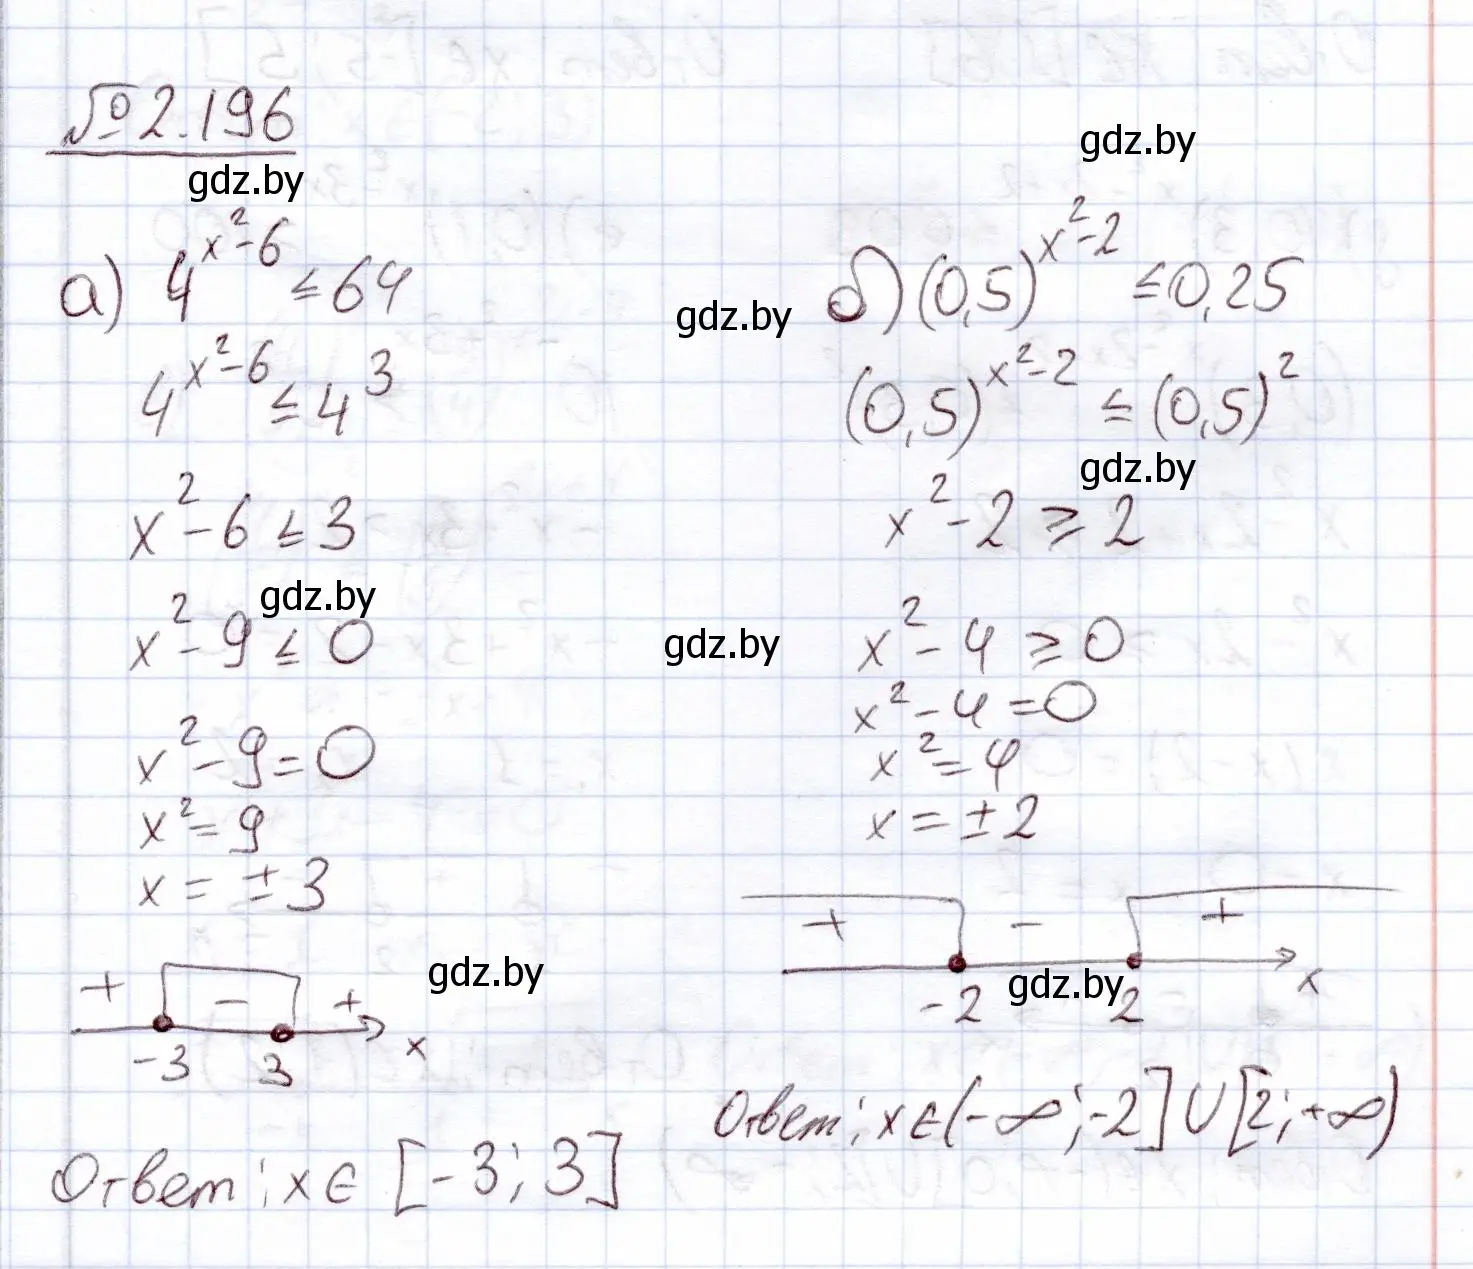 № 2.196
gdz.by
gdz.by
а) 4^(x²-6) ≤ 64
gdz.by
4^(x²-6) ≤ 4³
x² - 6 ≤ 3
gdz.by
x² - 9 ≤ 0
x² - 9 = 0
x² = 9
x = ± 3
+ - + x
-3 3
gdz.by
Ответ: x ∈ [-3; 3]
б) (0,5)^(x²-2) ≤ 0,25
(0,5)^(x²-2) ≤ (0,5)²
gdz.by
x² - 2 ≥ 2
gdz.by
x² - 4 ≥ 0
x² - 4 = 0
x² = 4
x = ± 2
+ - + x
-2 2
gdz.by
Ответ: x ∈ (-∞; -2] ∪ [2; +∞)